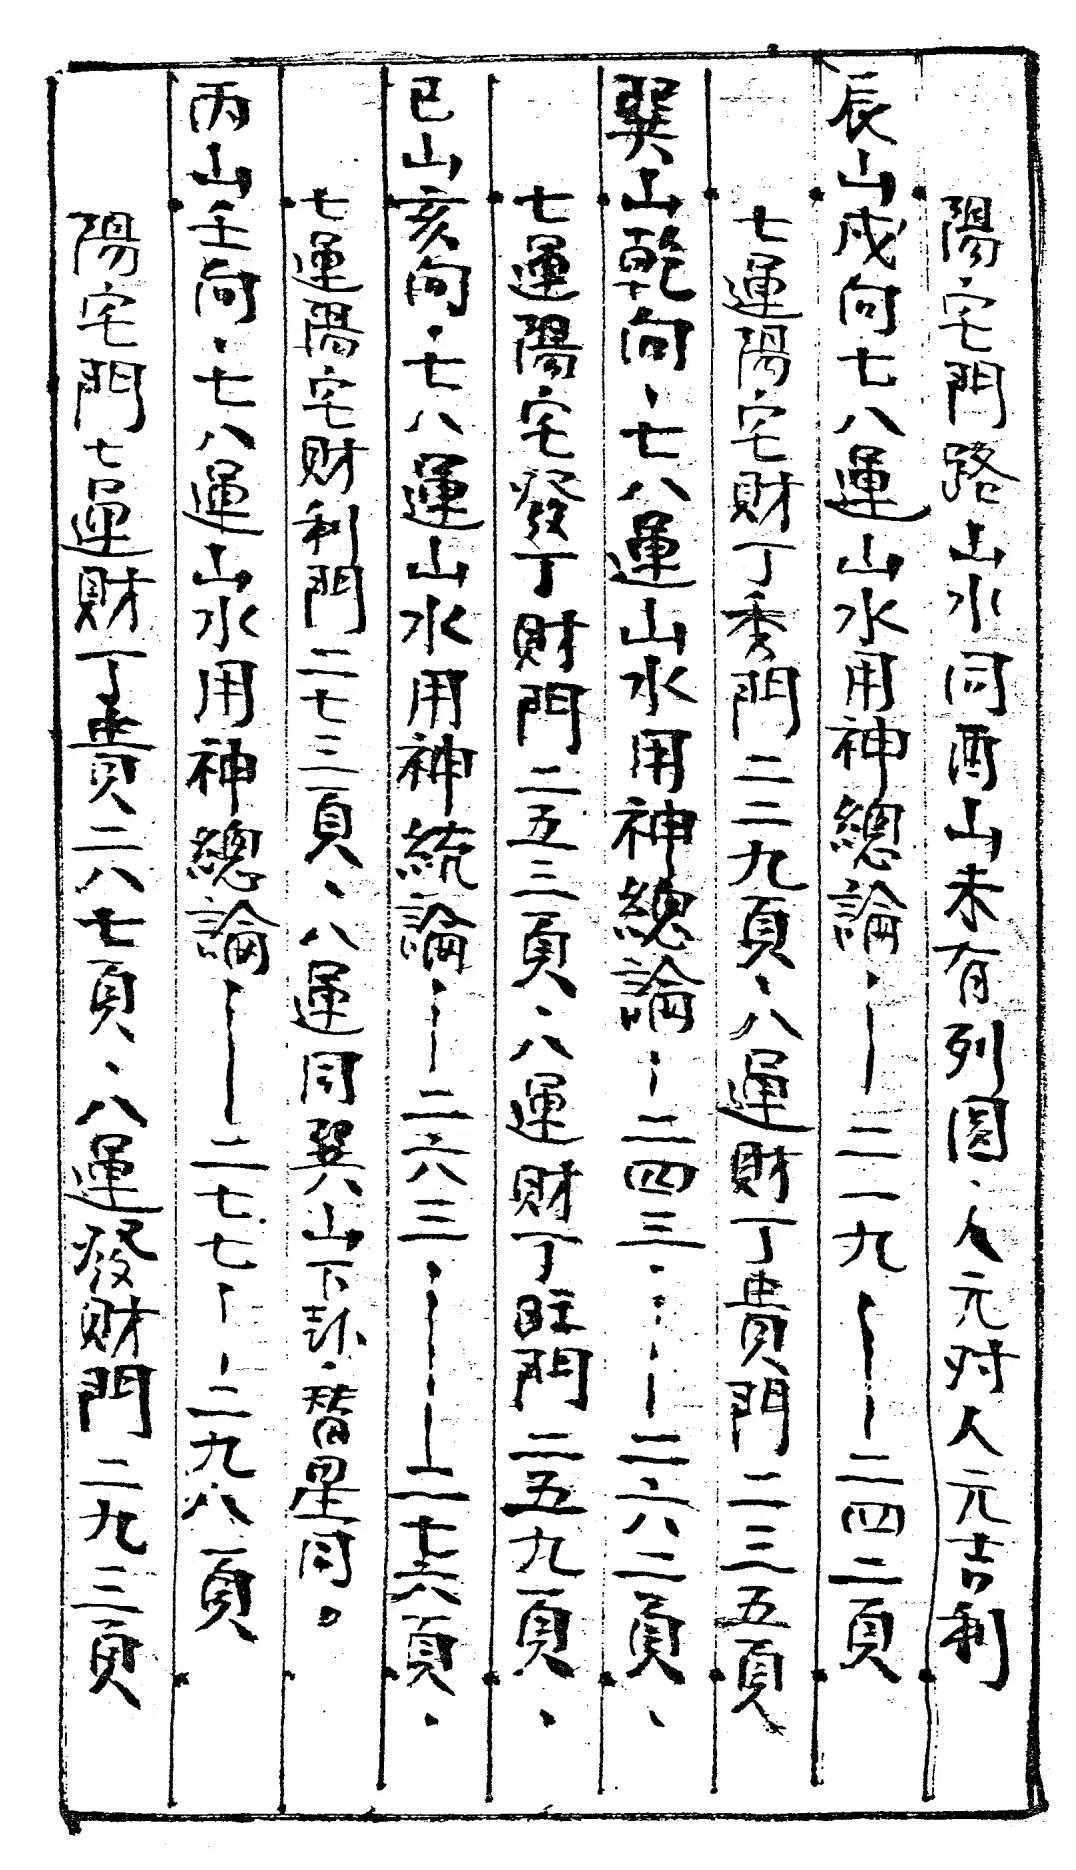 陽宅門路山水同酉山未有列圖、人元对人元吉利
辰山戌向七八運山水用神總論、——二一九——二四二頁
七運陽宅財丁秀門二二九頁、八運財丁貴門二三五頁
巽山乾向、七八運山水用神總論、—二四三、—二六二頁、
七運陽宅發丁財門二五三頁、八運財丁旺門二五九頁、
巳山亥向、七八運山水用神統論、—二六三、——二七六頁、
七運陽宅財利門二七三頁、八運同巽山下卦、替星同。
丙山壬向、七八運山水用神總論——二七七——二九八頁
陽宅門七運財丁貴二八七頁、八運發財門二九三頁